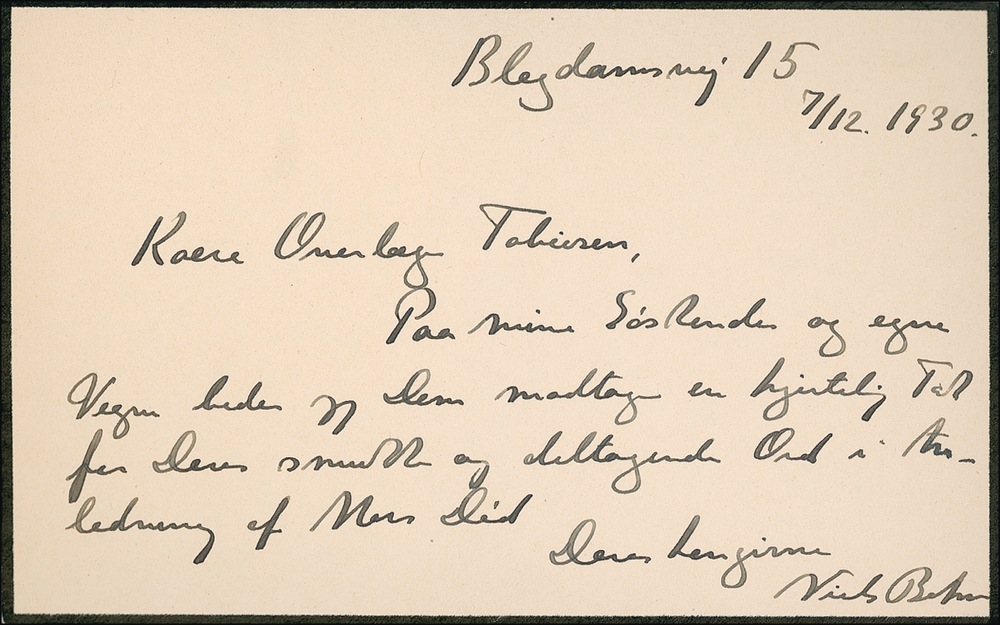 Blegdamsvej 15
7/12. 1930.
Kære Overlæge Tobiesen,
Paa mine Søskendes og egne
Vegne beder jeg Dem modtage en hjertelig Tak
for Deres smukke og deltagende Ord i An-
ledning af Mors Död
Deres hengivne
Niels Bohr